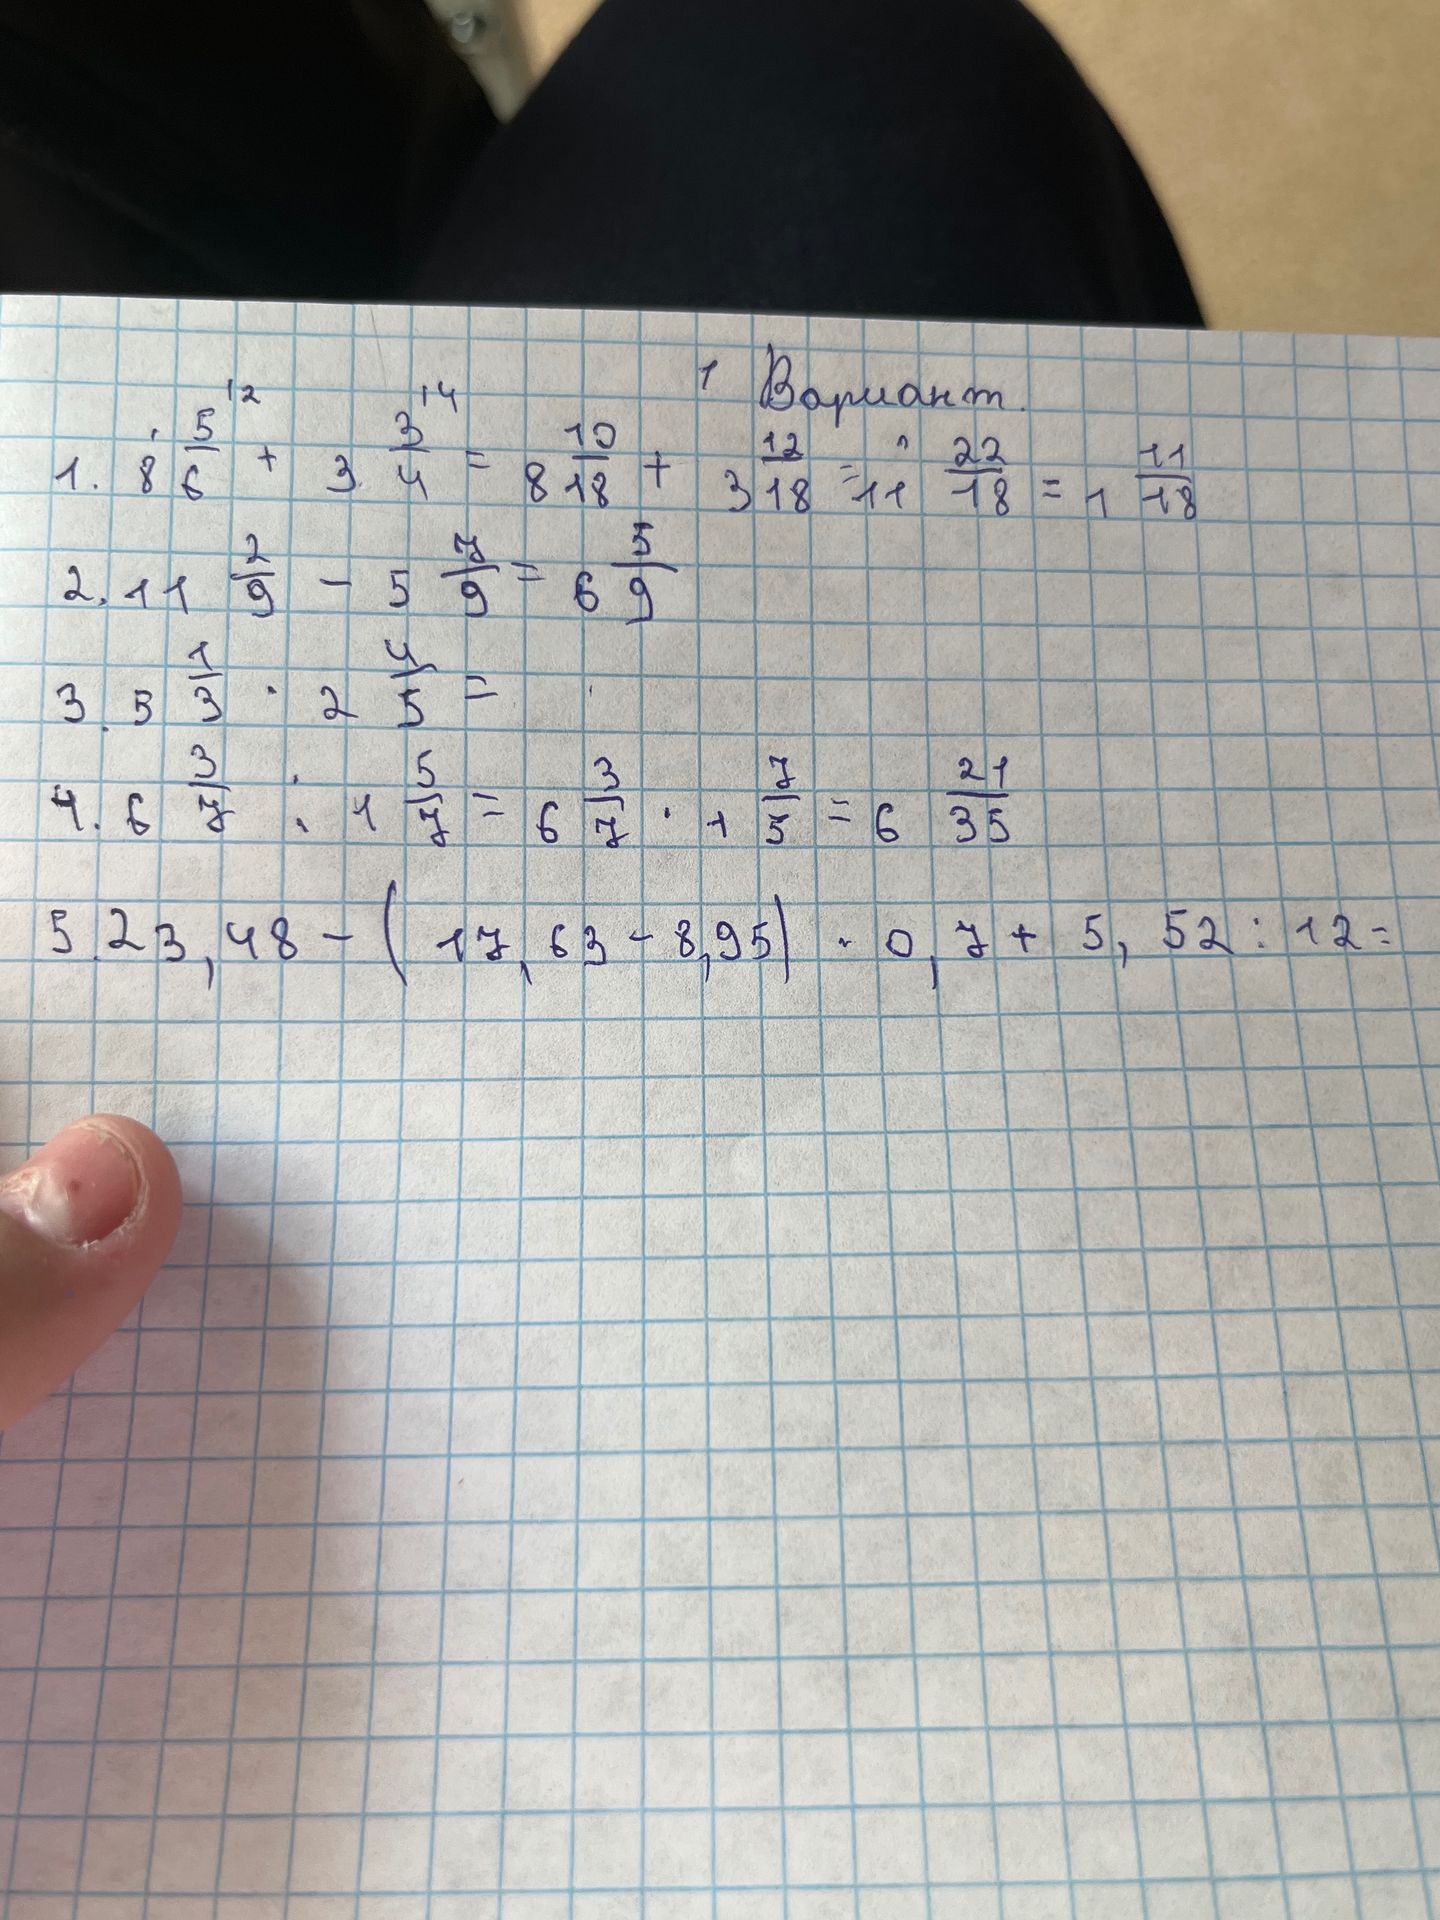 1 Вариант.
1. 8 5/6 12 + 3 3/4 14 = 8 10/18 + 3 12/18 = 11 22/18 = 1 11/18
2. 11 2/9 - 5 7/9 = 6 5/9
3. 5 1/3 · 2 4/5 =
4. 6 3/7 : 1 5/7 = 6 3/7 · 1 7/5 = 6 21/35
5. 23,48 - (17,63 - 8,95) · 0,7 + 5,52 : 12 =